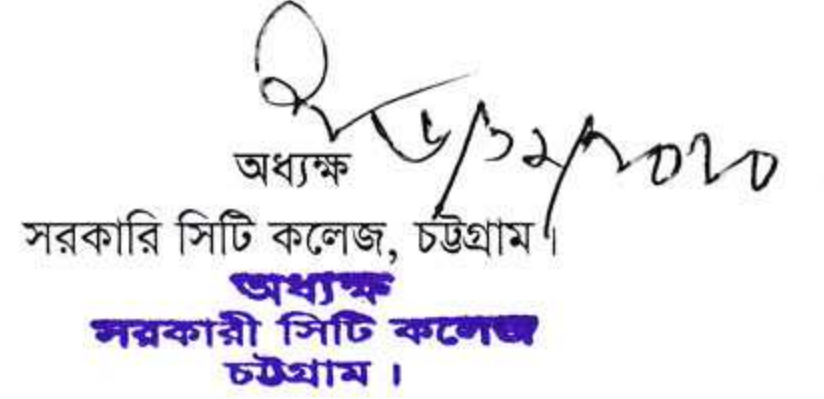 অধ্যক্ষ
সরকারি সিটি কলেজ, চট্টগ্রাম।
অধ্যক্ষ
সরকারী সিটি কলেজ
চট্টগ্রাম ।